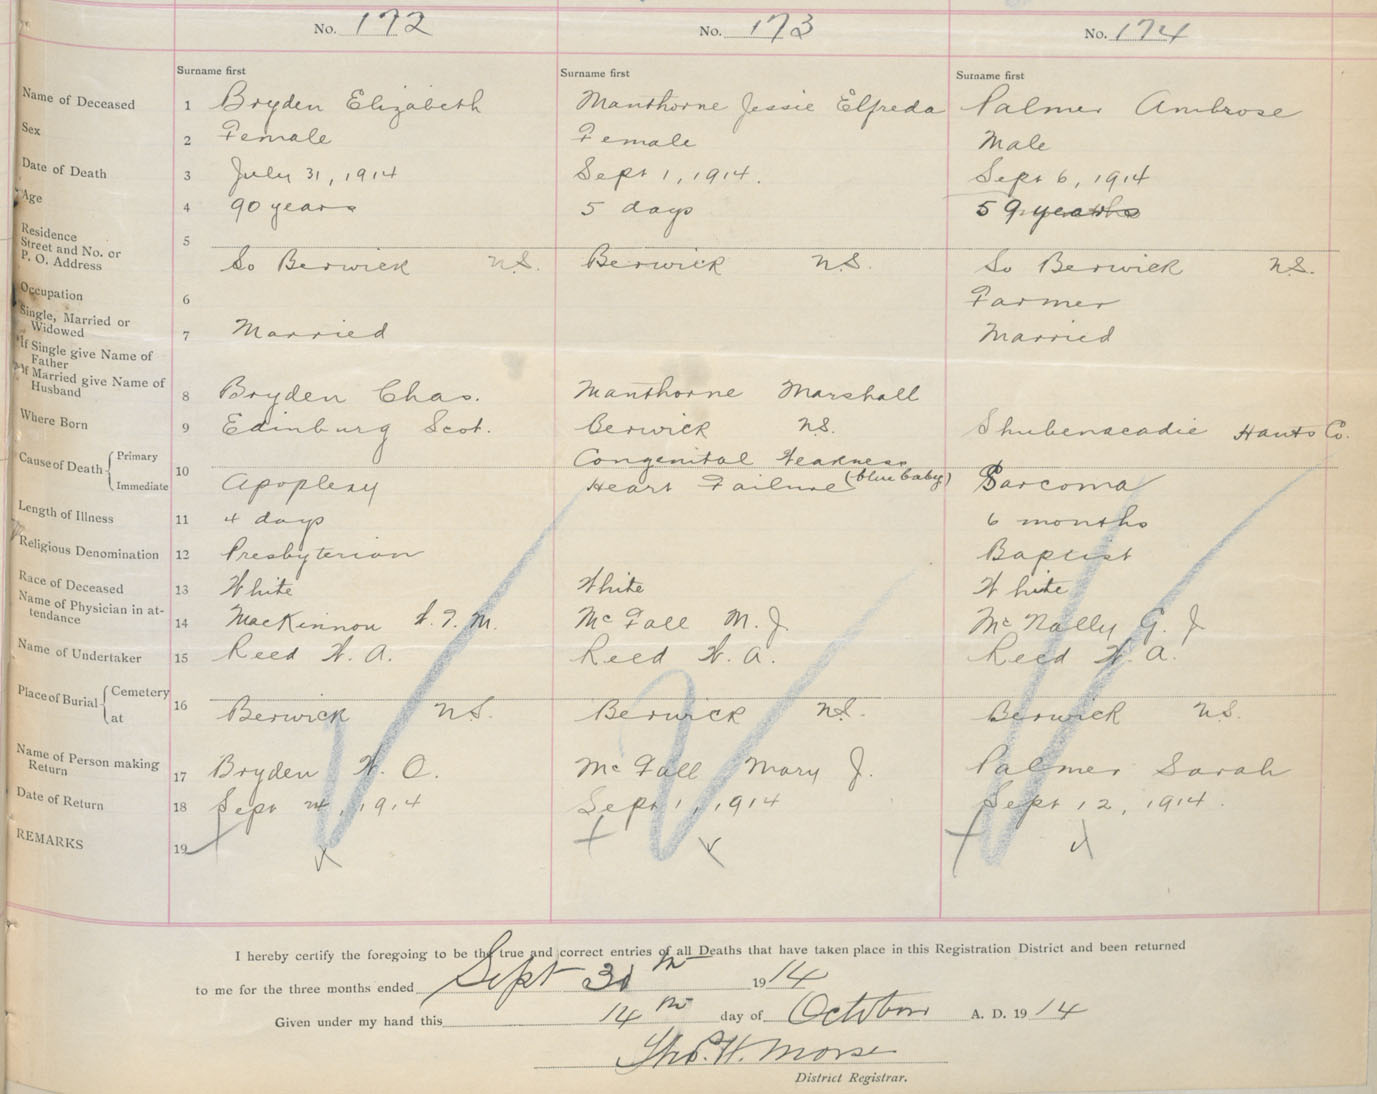 No. 172 No. 173 No. 174
Surname first Surname first Surname first
Name of Deceased 1 Bryden Elizabeth Manthorne Jessie Elfreda Palmer Ambrose
Sex 2 Female Female Male
Date of Death 3 July 31, 1914 Sept 1, 1914. Sept 6, 1914
Age 4 90 years 5 days 59 years
Residence 5
Street and No. or
P. O. Address So Berwick N.S. Berwick N.S. So Berwick N.S.
Occupation 6 Farmer
Single, Married or
Widowed 7 Married Married
If Single give Name of
Father
If Married give Name of
Husband 8 Bryden Chas. Manthorne Marshall
Where Born 9 Edinburg Scot. Berwick N.S. Shubenacadie Hants Co.
Cause of Death { Primary Congenital Weakness
Immediate 10 Apoplexy Heart Failure (blue baby) Sarcoma
Length of Illness 11 4 days 6 months
Religious Denomination 12 Presbyterian Baptist
Race of Deceased 13 White White White
Name of Physician in at-
tendance 14 MacKinnon W.F.M. McFall M. J McNally G. J
Name of Undertaker 15 Reed W. A. Reed W. A. Reed W. A.
Place of Burial { Cemetery 16
at Berwick N.S. Berwick N.S. Berwick N.S.
Name of Person making
Return 17 Bryden W. O. McFall Mary J. Palmer Sarah
Date of Return 18 Sept 24, 1914 Sept 1, 1914 Sept 12, 1914.
REMARKS 19
I hereby certify the foregoing to be the true and correct entries of all Deaths that have taken place in this Registration District and been returned
to me for the three months ended Sept 1914
Given under my hand this 14th day of October A. D. 1914
Thos. H. Morse
District Registrar.